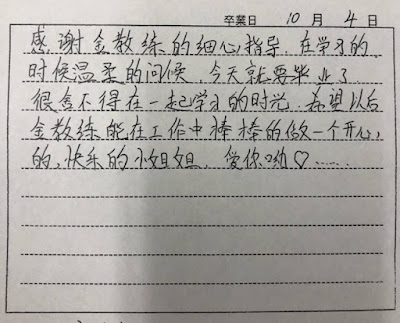 卒業日 10 月 4 日
感谢金教练的细心指导，在学习的
时候温柔的问候，今天就要毕业了
很舍不得在一起学习的时光，希望以后
金教练能在工作中棒棒的做一个开心，
的，快乐的小姐姐，爱你呦♡……